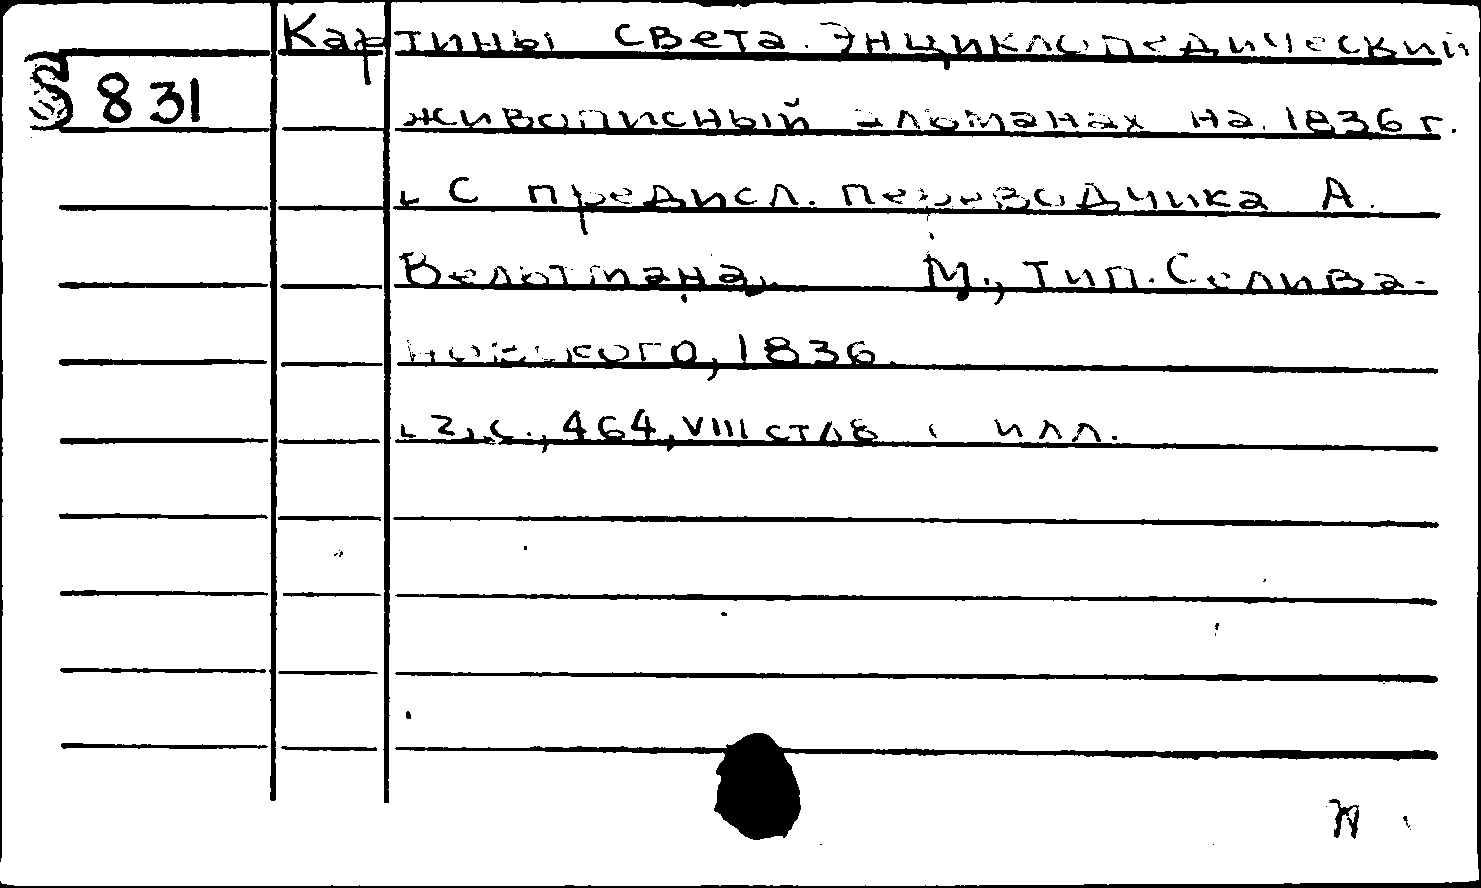 Картины света. Энциклопедический
831
живописный альманах на 1836 г.
С предисл. переводчика А.
Вельтмана. М., тип. Селива-
новского, 1836.
2, с., 464, VIII стлб. илл.